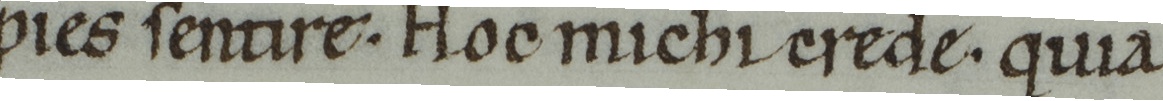 pies sentire. Hoc michi crede. quia